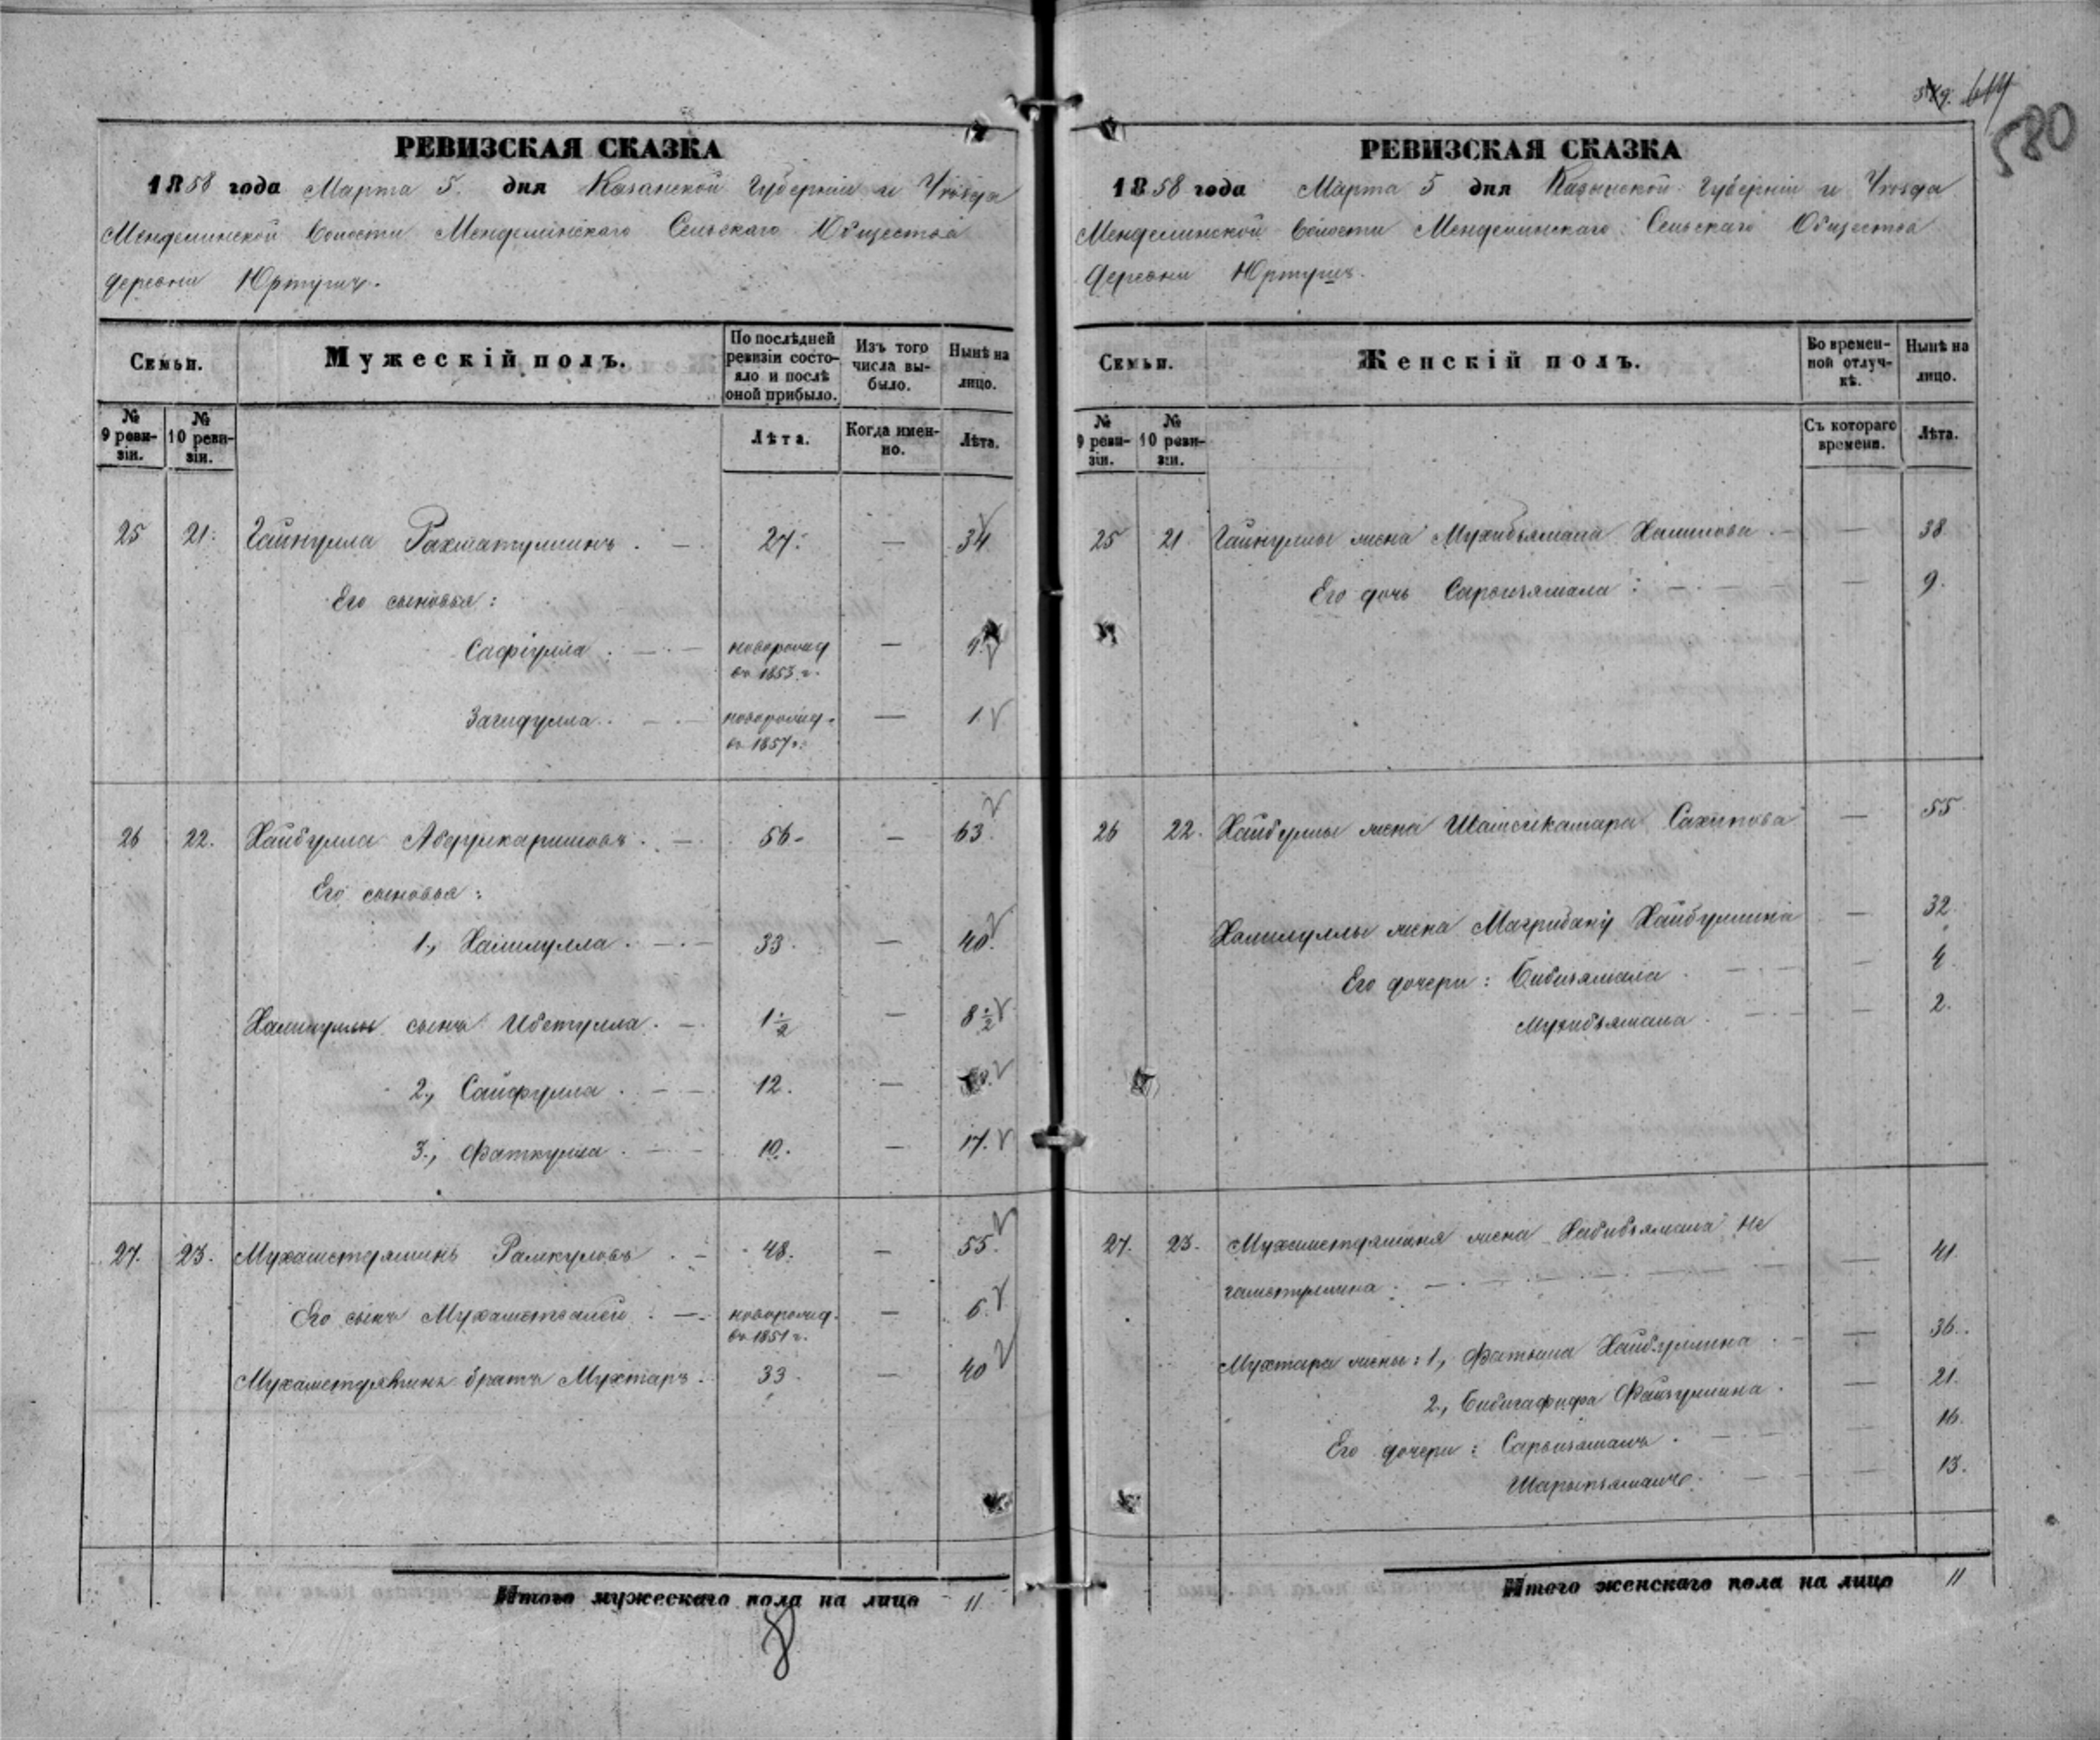 РЕВИЗСКАЯ СКАЗКА
1858 года Марта 5. дня Казанской Губерніи и Уѣзда
Менделинской Волости Менделинскаго Сельскаго Общества
деревни Юртушъ.
Семьи.
Мужескій полъ.
По послѣдней ревизіи состояло и послѣ оной прибыло.
Изъ того числа выбыло.
Нынѣ на лицо.
№ 9 ревизіи.
№ 10 ревизіи.
Лѣта.
Когда именно.
Лѣта.
25 21. Гайнулла Рахматуллинъ . — 27. — 34
Его сыновья:
Сафіулла . — . — новорожд — 
въ 1853 г.
Загидулла . — . — новорожд. — 1.
въ 1857 г.
26 22. Хайбулла Абдулкаримовъ . — 56. — 63.
Его сыновья:
1, Хамлулла . — . — 33. — 40.
сынъ Ибетулла . — 1 1/2 — 8 1/2
2, Сайфулла . — — 12. —
3, Фаткулла . — — 10. — 17.
27. 23. Мухаметдяминъ Рамкуловъ . — 48. — 55.
Его сынъ Мухаметвалей . — новорожд. — 6.
въ 1851 г.
Мухаметдяминъ братъ Мухтаръ . 33. — 40
Итого мужескаго пола на лицо 11.
8
579. 614
580
РЕВИЗСКАЯ СКАЗКА
1858 года Марта 5 дня Казанской Губерніи и Уѣзда
Менделинской Волости Менделинскаго Сельскаго Общества
Деревни Юртушъ.
Семьи.
Женскій полъ.
Во временной отлучкѣ.
Нынѣ на лицо.
№ 9 ревизіи.
№ 10 ревизіи.
Съ котораго времени.
Лѣта.
25 21 Гайнуллы жена Мухибзямала Халитова . — — 38.
Его дочь Сарбизямала : — . — — 9.
26 22. Хайбуллы жена Шамсикамара Сахипова — 55
Хамлуллы жена Магрибану Хайбуллина — 32.
Его дочери : Бибизямала . — — — 4.
Мухибзямала . — — — 2.
27. 23. Мухаметдяминя жена Хабибзямала Не
гаметуллина . — . — — 41.
Мухтара жены : 1, Фатыма Хайбуллина . — — 36.
2, Бибигафифа Файзуллина . — 21.
Его дочери : Сарбизямалъ . — — — 16.
Шарыпзямалъ . — — — 13.
Итого женскаго пола на лицо 11